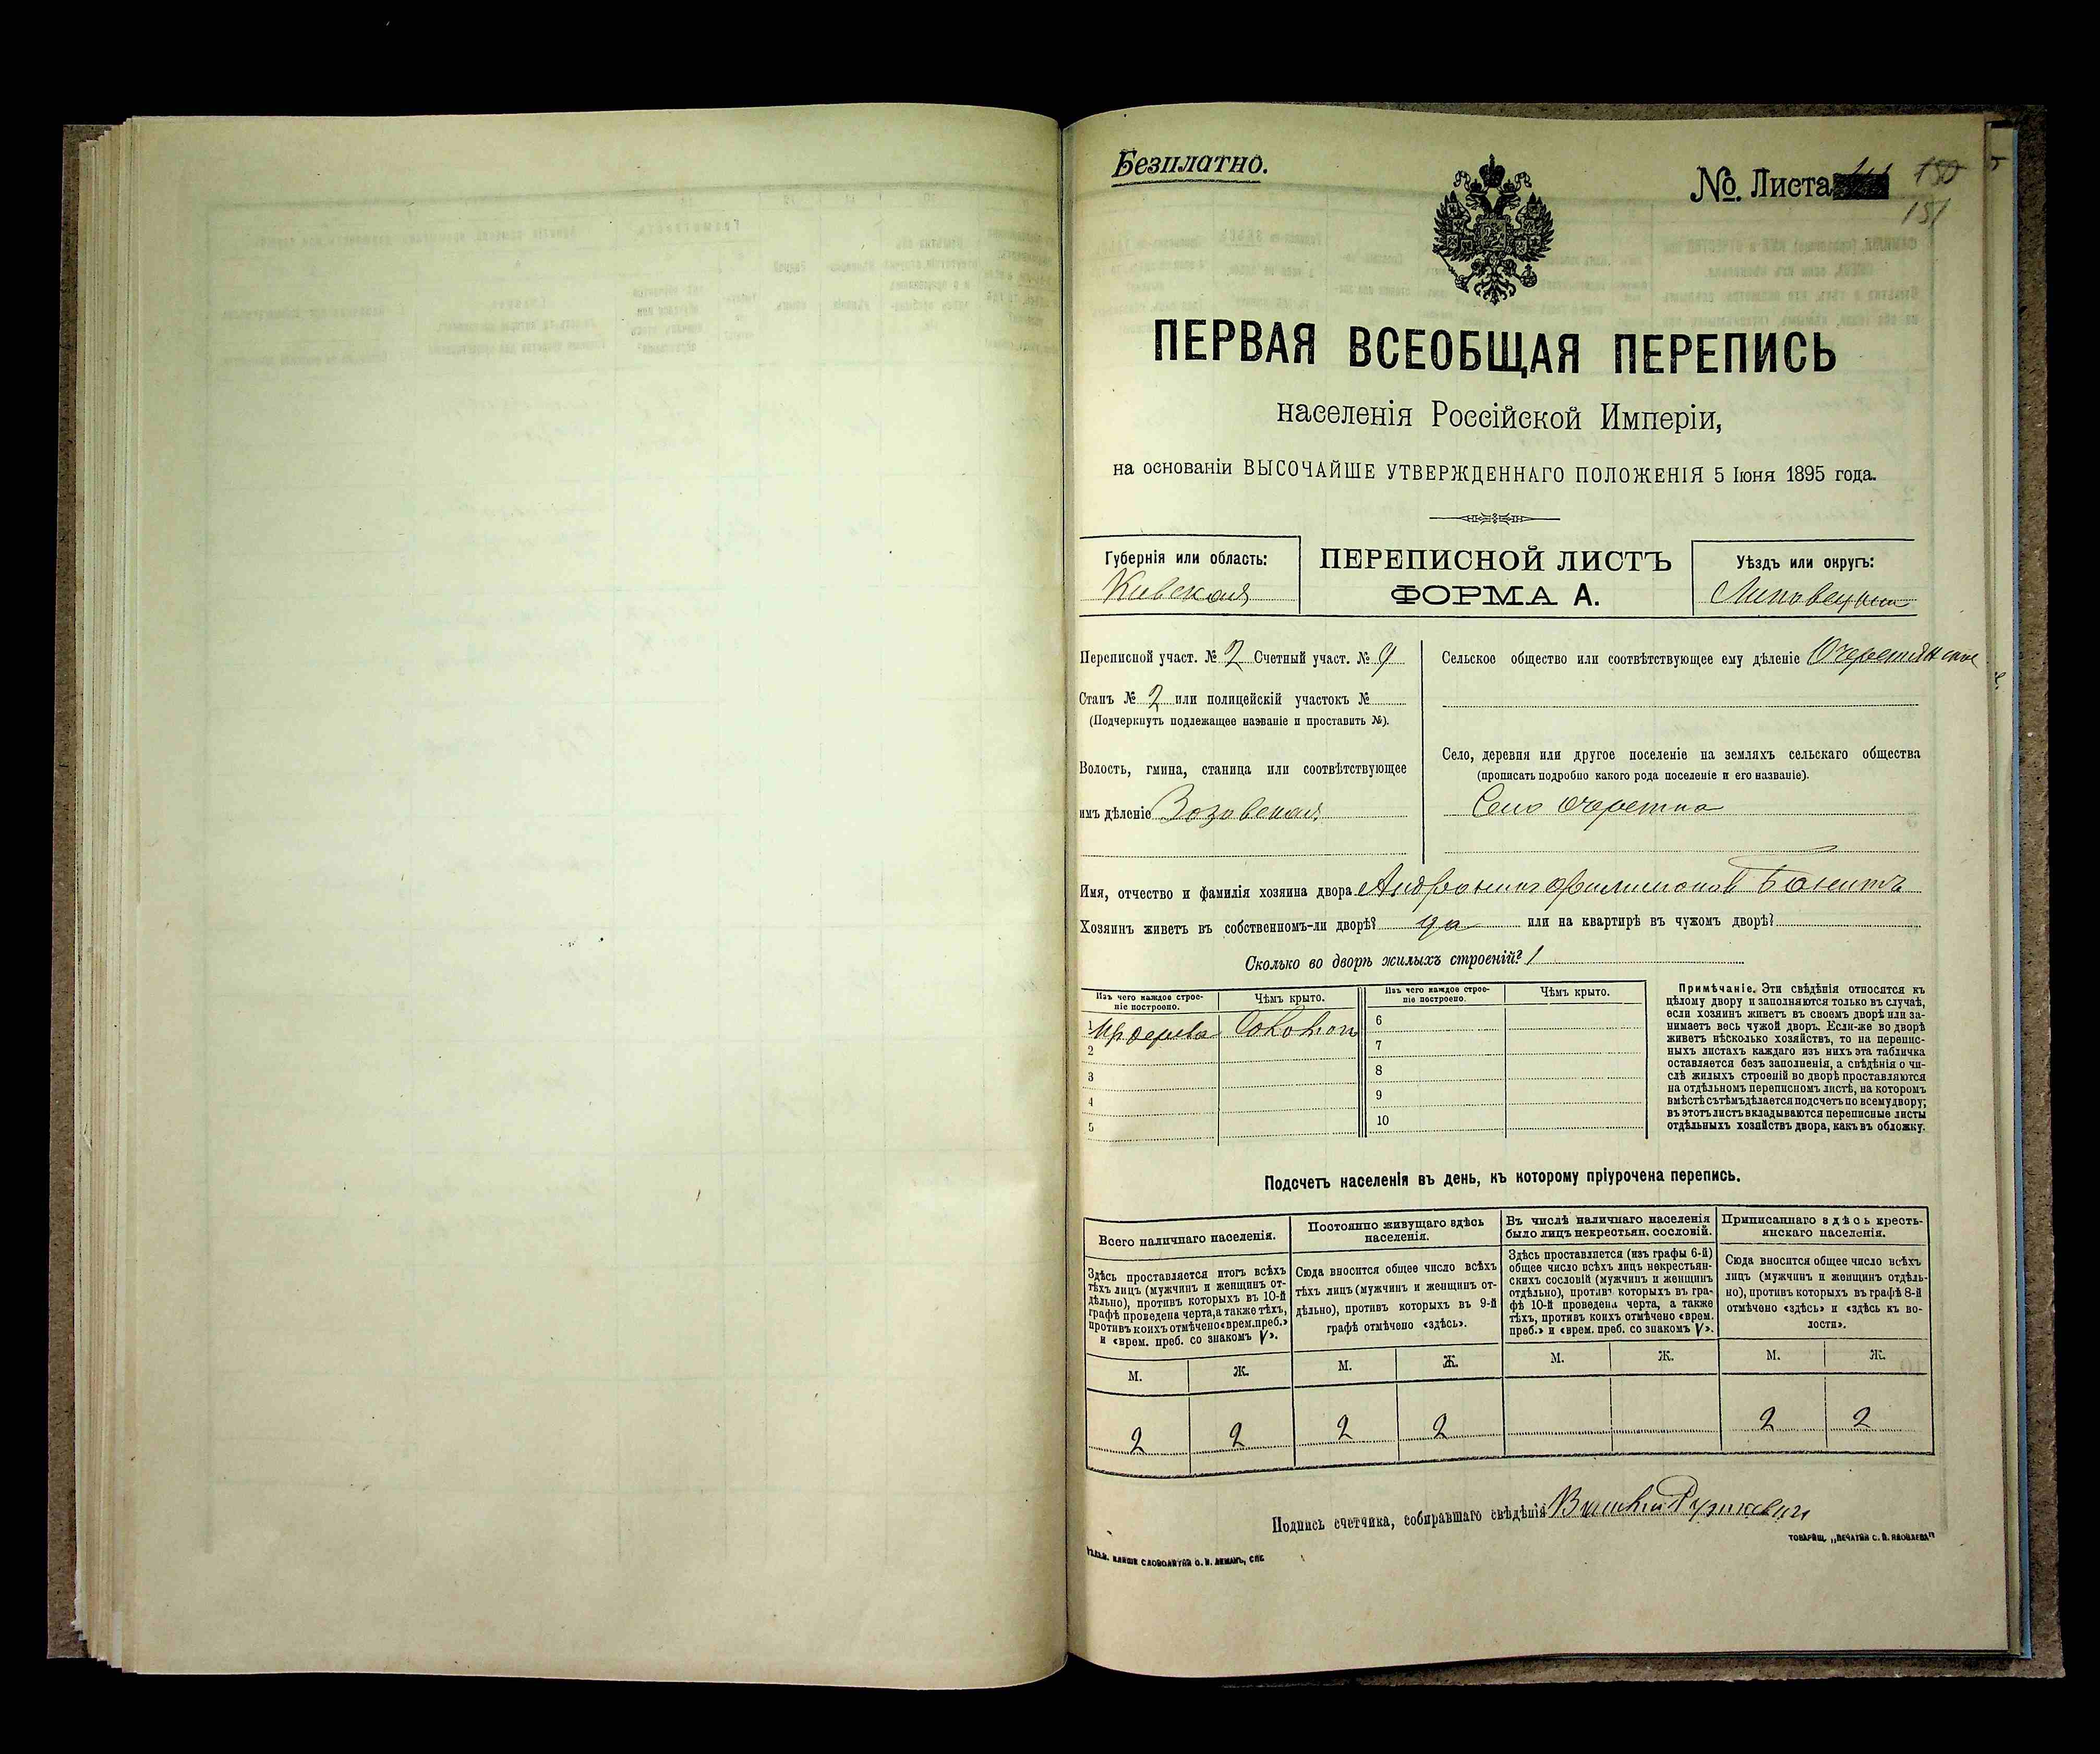 Безплатно.
№. Листа 150
151
ПЕРВАЯ ВСЕОБЩАЯ ПЕРЕПИСЬ
населенія Россійской Имперіи,
на основаніи ВЫСОЧАЙШЕ УТВЕРЖДЕННАГО ПОЛОЖЕНІЯ 5 Іюня 1895 года.
Губернія или область:
Киевская
ПЕРЕПИСНОЙ ЛИСТЪ
ФОРМА А.
Уѣздъ или округъ:
Липовецкий
Переписной участ. № 2 Счетный участ. № 9
Станъ № 2 или полицейскій участокъ №
(Подчеркнуть подлежащее названіе и проставить №).
Волость, гмина, станица или соотвѣтствующее
имъ дѣленіе Зозовская
Сельское общество или соотвѣтствующее ему дѣленіе Очеретянское
Село, деревня или другое поселеніе на земляхъ сельскаго общества
(прописать подробно какого рода поселеніе и его названіе).
Село Очеретна
Имя, отчество и фамилія хозяина двора
Хозяинъ живетъ въ собственномъ-ли дворѣ? да или на квартирѣ въ чужомъ дворѣ?
Сколько во дворѣ жилыхъ строеній? 1
Изъ чего каждое строе-
ніе построено.
Чѣмъ крыто.
Изъ чего каждое строе-
ніе построено.
Чѣмъ крыто.
1 дерева 6
2 7
3 8
4 9
5 10
Примѣчаніе. Эти свѣдѣнія относятся къ
цѣлому двору и заполняются только въ случаѣ,
если хозяинъ живетъ въ своемъ дворѣ или за-
нимаетъ весь чужой дворъ. Если-же во дворѣ
живетъ нѣсколько хозяйствъ, то на перепис-
ныхъ листахъ каждаго изъ нихъ эта табличка
оставляется безъ заполненія, а свѣдѣнія о чи-
слѣ жилыхъ строеній во дворѣ проставляются
на отдѣльномъ переписномъ листѣ, на которомъ
вмѣстѣ съ тѣмъ дѣлается подсчетъ по всему двору;
въ этотъ листъ вкладываются переписные листы
отдѣльныхъ хозяйствъ двора, какъ въ обложку.
Подсчетъ населенія въ день, къ которому пріурочена перепись.
Всего наличнаго населенія.
Здѣсь проставляется итогъ всѣхъ
тѣхъ лицъ (мужчинъ и женщинъ от-
дѣльно), противъ которыхъ въ 10-й
графѣ проведена черта, а также тѣхъ,
противъ коихъ отмѣчено «врем. преб.»
и «врем. преб. со знакомъ V».
Постоянно живущаго здѣсь
населенія.
Сюда вносится общее число всѣхъ
тѣхъ лицъ (мужчинъ и женщинъ от-
дѣльно), противъ которыхъ въ 9-й
графѣ отмѣчено «здѣсь».
Въ числѣ наличнаго населенія
было лицъ некрестьян. сословій.
Здѣсь проставляется (изъ графы 6-й)
общее число всѣхъ лицъ некрестьян-
скихъ сословій (мужчинъ и женщинъ
отдѣльно), противъ которыхъ въ гра-
фѣ 10-й проведена черта, а также
тѣхъ, противъ коихъ отмѣчено «врем.
преб.» и «врем. преб. со знакомъ V».
Приписаннаго здѣсь кресть-
янскаго населенія.
Сюда вносится общее число всѣхъ
лицъ (мужчинъ и женщинъ отдѣль-
но), противъ которыхъ въ графѣ 8-й
отмѣчено «здѣсь» и «здѣсь къ во-
лости».
М. Ж. М. Ж. М. Ж. М. Ж.
2 2 2 2 2 2
Подпись счетчика, собиравшаго свѣдѣнія
СЛОВОЛИТНИ О. И. ЛЕМАНЪ, СПБ
ТОВАРИЩ. „ПЕЧАТНИ С. П. ЯКОВЛЕВА“